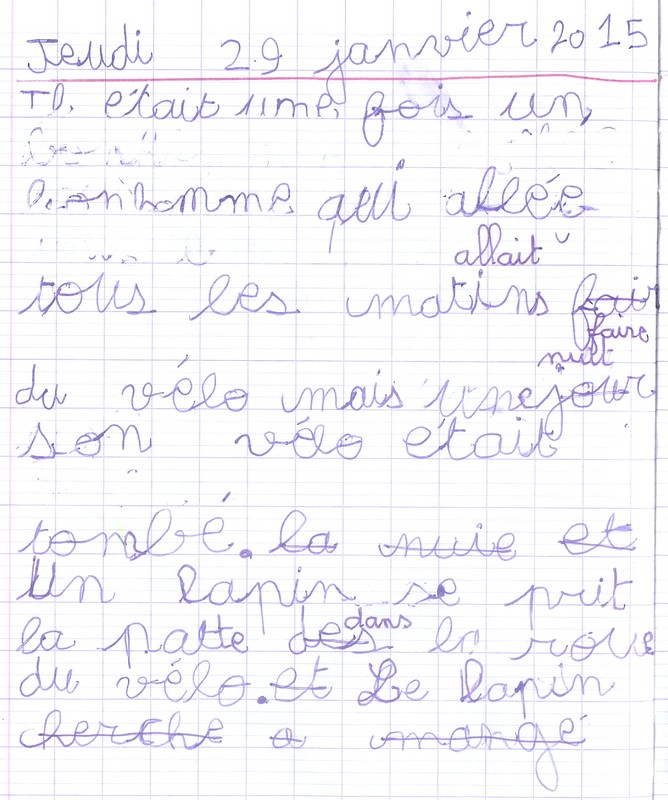 Jeudi 29 janvier 2015
Il était une fois un
bonhomme qui allée
allait
tous les matins fair
faire
nuit
du vélo mais une jour
son vélo était
tombé. la nuie et
Un lapin se prit
dans
la patte des la roue
du vélo. et Le lapin
cherche a mangé